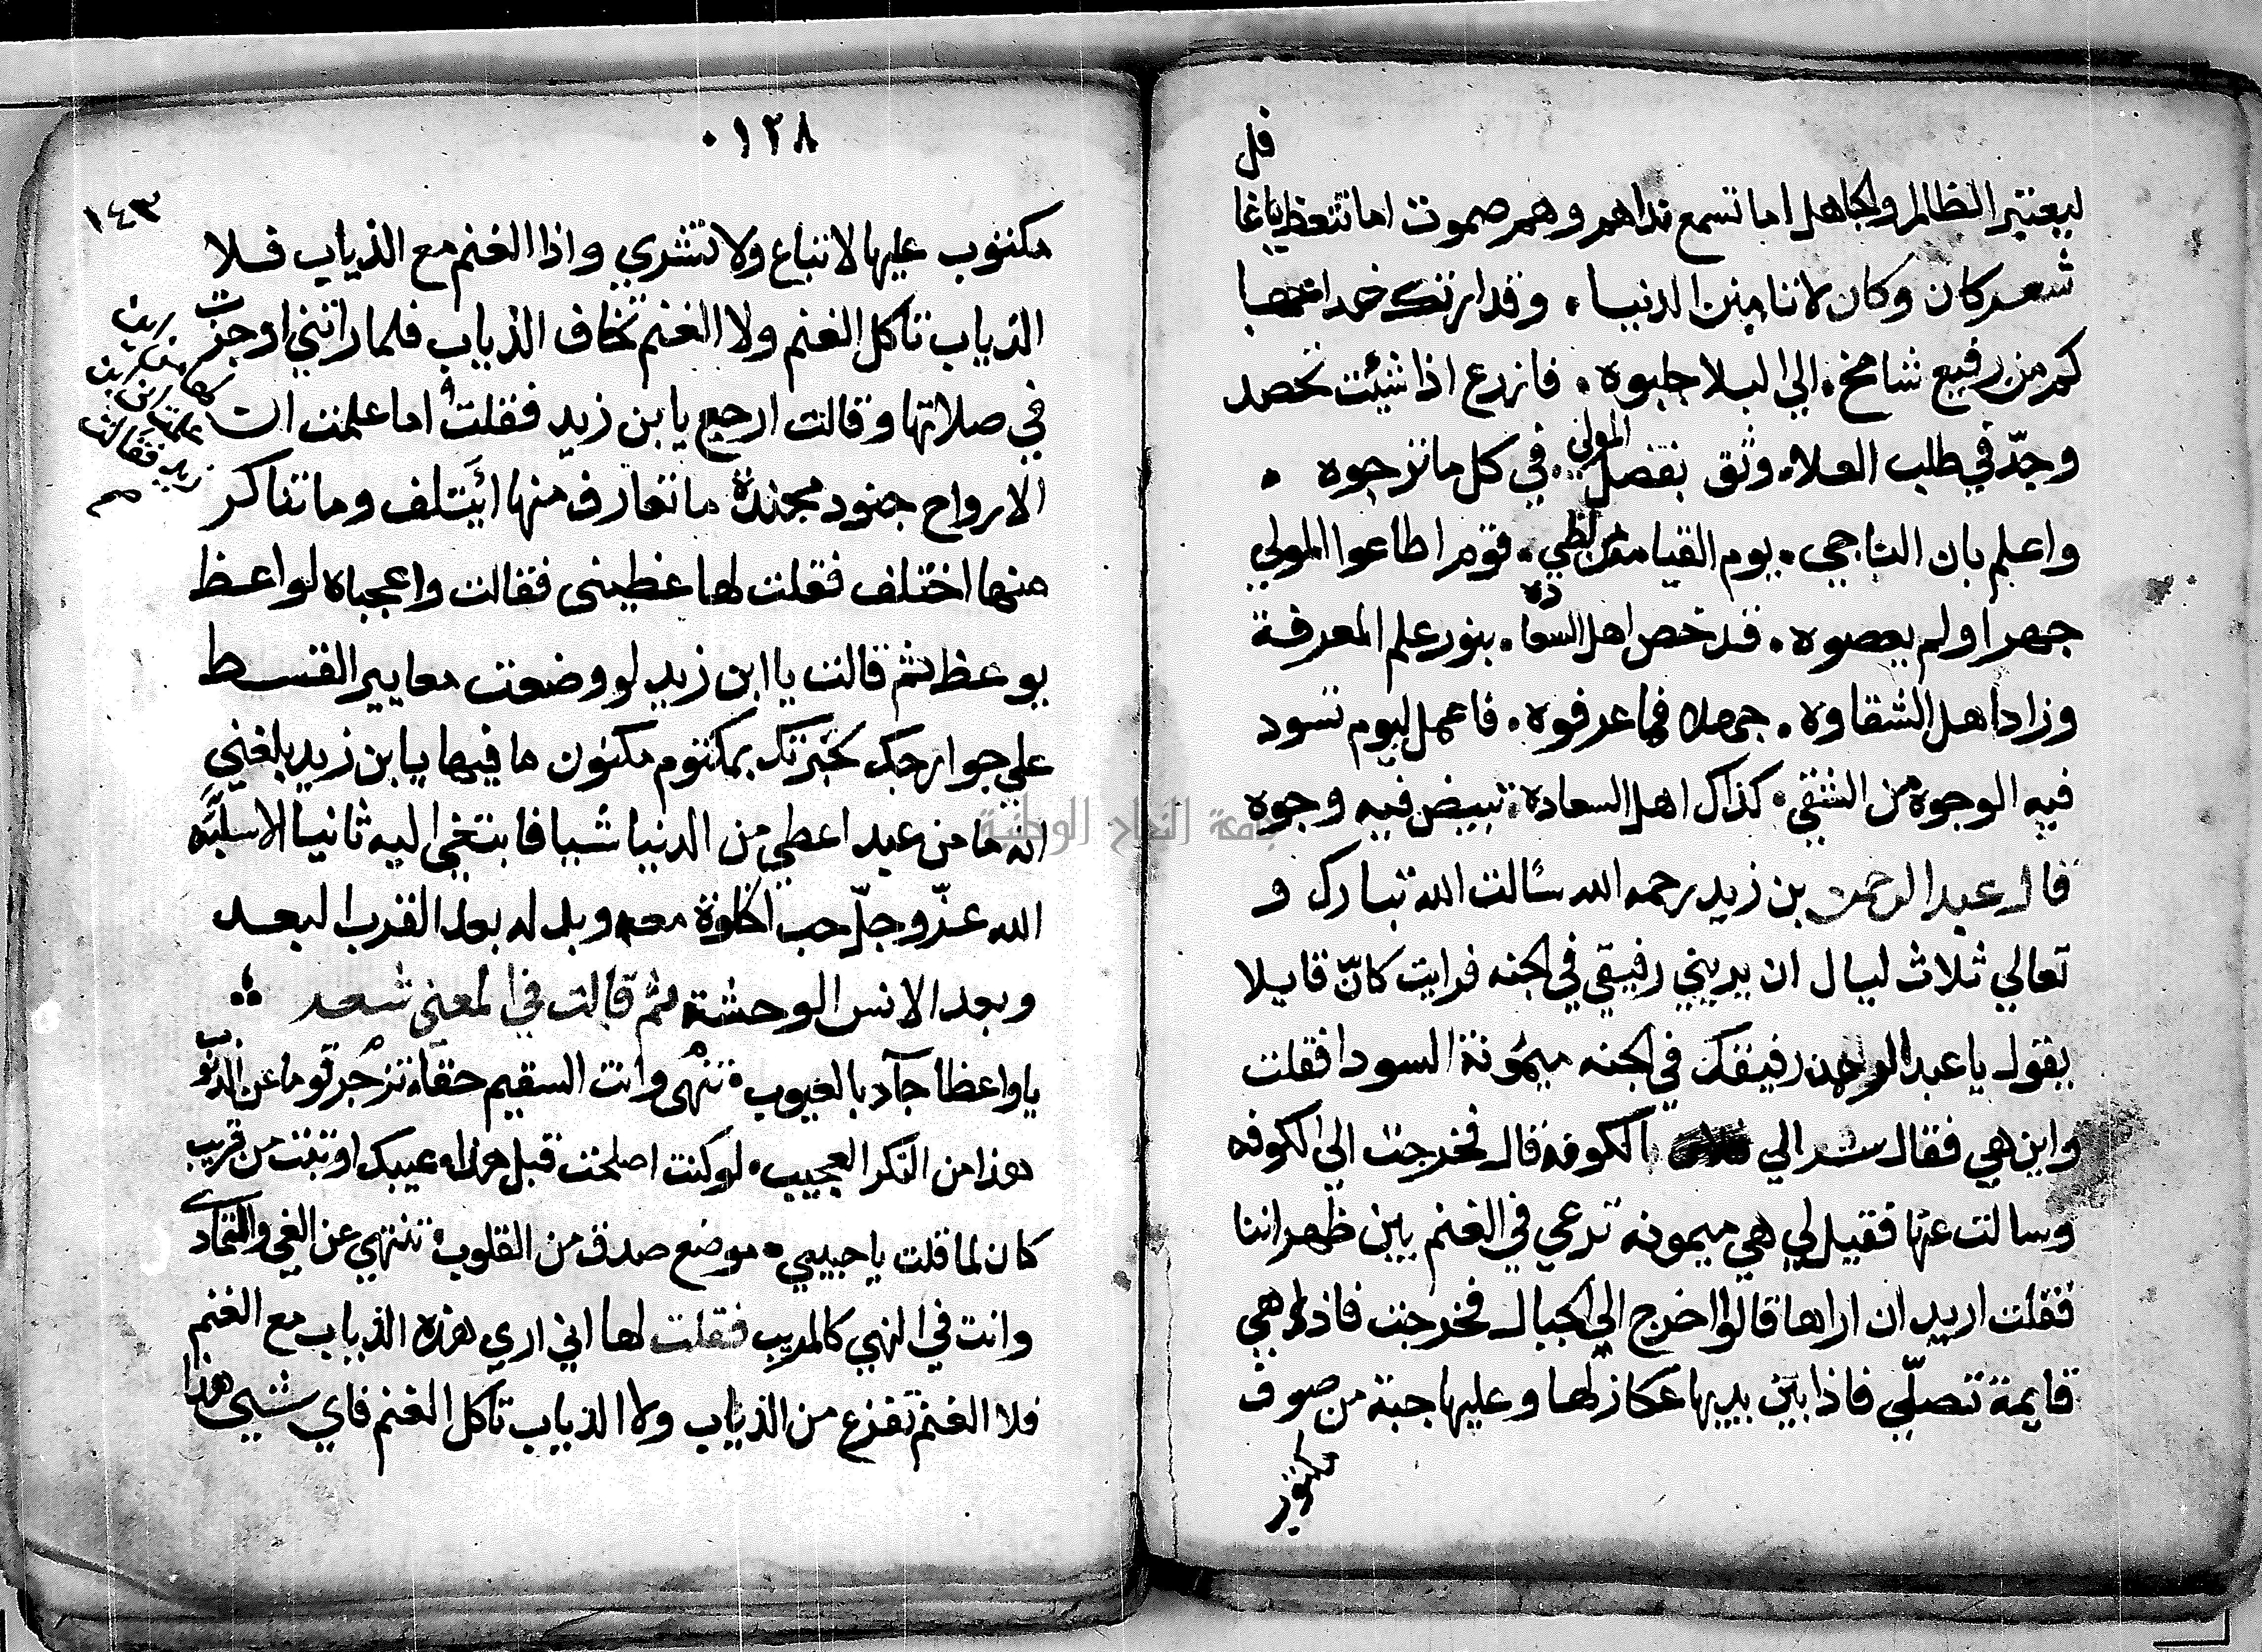 ليعتبر الظالم والجاهل اما تسمع نداهم وهم صموت اما تتعظ ياغا
فل
شعر كان وكان لاتامنن الدنيا ٠ وقد ارتك
كم من رفيع شامخ ٠ الي البلا جلبوه ٠ فازرع اذا شيئت تحصد
وجدّ في طلب العلا ٠ وثق بفضل المولي ٠ في كل ما ترجوه ٠
واعلم بان الناجي ٠ يوم القيامه من لظي ٠ قوم اطاعوا المولي
جهرا ولم يعصوه ٠ قد خص اهل السعاده ٠ بنور علم المعرفة
وزاد اهل الشقاوه ٠ جهلا فما عرفوه ٠ فاعمل ليوم تسود
فيه الوجوه من الشقي ٠ كذاك اهل السعادة ٠ تبيض فيه وجوه
قال عبد الرحمن بن زيد رحمه الله سالت الله تبارك و
تعالي ثلاث ليال ان يريني رفيقي في الجنه فرايت كانّ قايلا
يقول يا عبد الواحد رفيقك في الجنه ميمونة السودا فقلت
واين هي فقال سر الي الكوفه قال فخرجت الي الكوفه
وسالت عنها فقيل لي هي ميمونه ترعي في الغنم بين ظهراننا
فقلت اريد ان اراها قالوا اخرج الي الجبال فخرجت فاذا هي
قايمة تصلّي فاذا بين يديها عكاز لها وعليها جبة من صوف
مكتوب
٠١٢٨
١٤٣
مكتوب عليها لا تباع ولا تشري واذا الغنم مع الذياب فلا
الذياب تاكل الغنم ولا الغنم تخاف الذياب فلما راتني اوجزت
في صلاتها وقالت ارجع يا بن زيد فقلت اما علمت ان
لها من اين
علمت اني ابن
زيد فقالت
الارواح جنود مجندة ما تعارف منها ائيتلف وما تناكر
منها اختلف فقلت لها عظيني فقالت واعجباه لواعظ
يوعظ ثم قالت يا ابن زيد لو وضعت معايير القسط
علي جوارحك لخبرتك بمكتوم مكنون ما فيها يا بن زيد بلغني
انه ما من عبد اعطي من الدنيا شيا فابتغي اليه ثانيا الا سلبَه
الله عزّ وجلّ حب الخلوة معه وبدله بعد القرب البعد
وبعد الانس الوحشة ثم قالت في المعني شعر
يا واعظا جآء بالعيوب ٠ تنهي وانت السقيم حقا ٠ تزجر قوما عن الذنوب
هذا من النكر العجيب ٠ لو كنت اصلحت قبل هذا ٠ عيبك او تبت من قريب
كان لما قلت يا حبيبي ٠ موضع صدق من القلوب ٠ تنتهي عن الغي والتمادي
وانت في النهي كالمريب فقلت لها اني اري هذه الذياب مع الغنم
فلا الغنم تفزع من الذياب ولا الذياب تاكل الغنم فاي شيي هذا
جامعة النجاح الوطنية